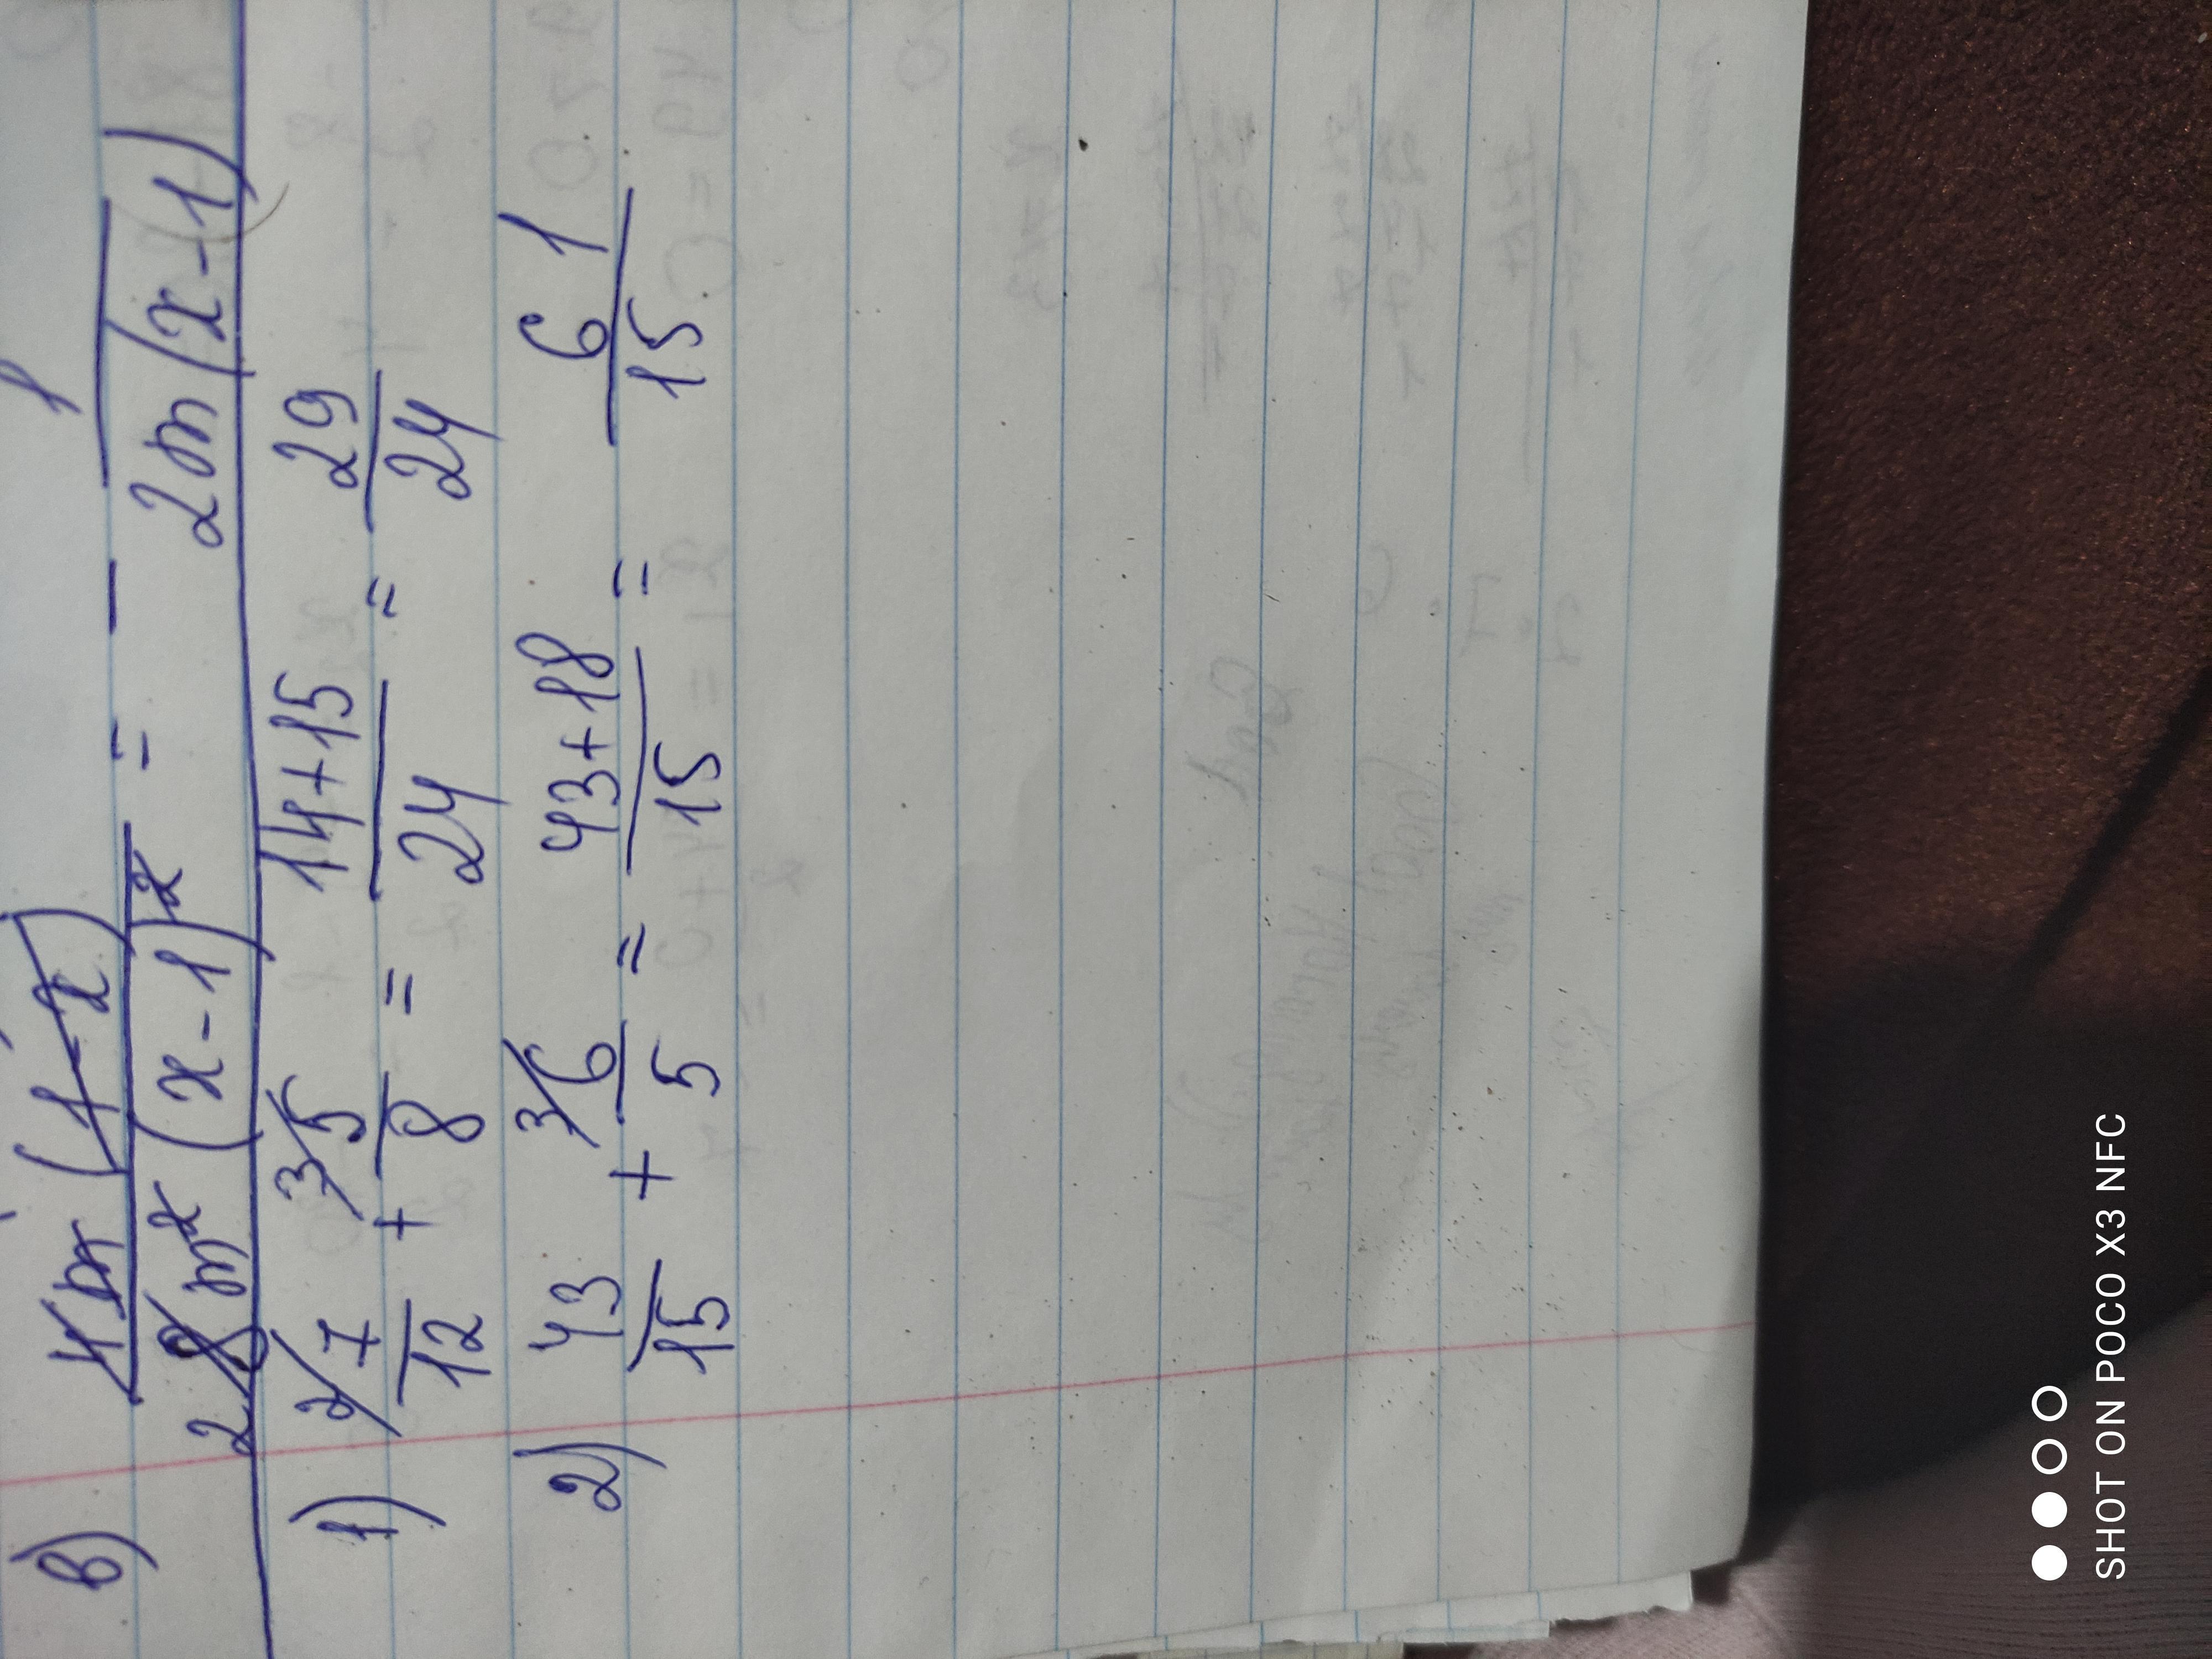 в) 4m(1-x) / 8m²(x-1)² = - 1 / 2m(x-1)
1) 7/12 + 5/8 = 14+15/24 = 29/24
2) 43/15 + 6/5 = 43+18/15 = 61/15
SHOT ON POCO X3 NFC